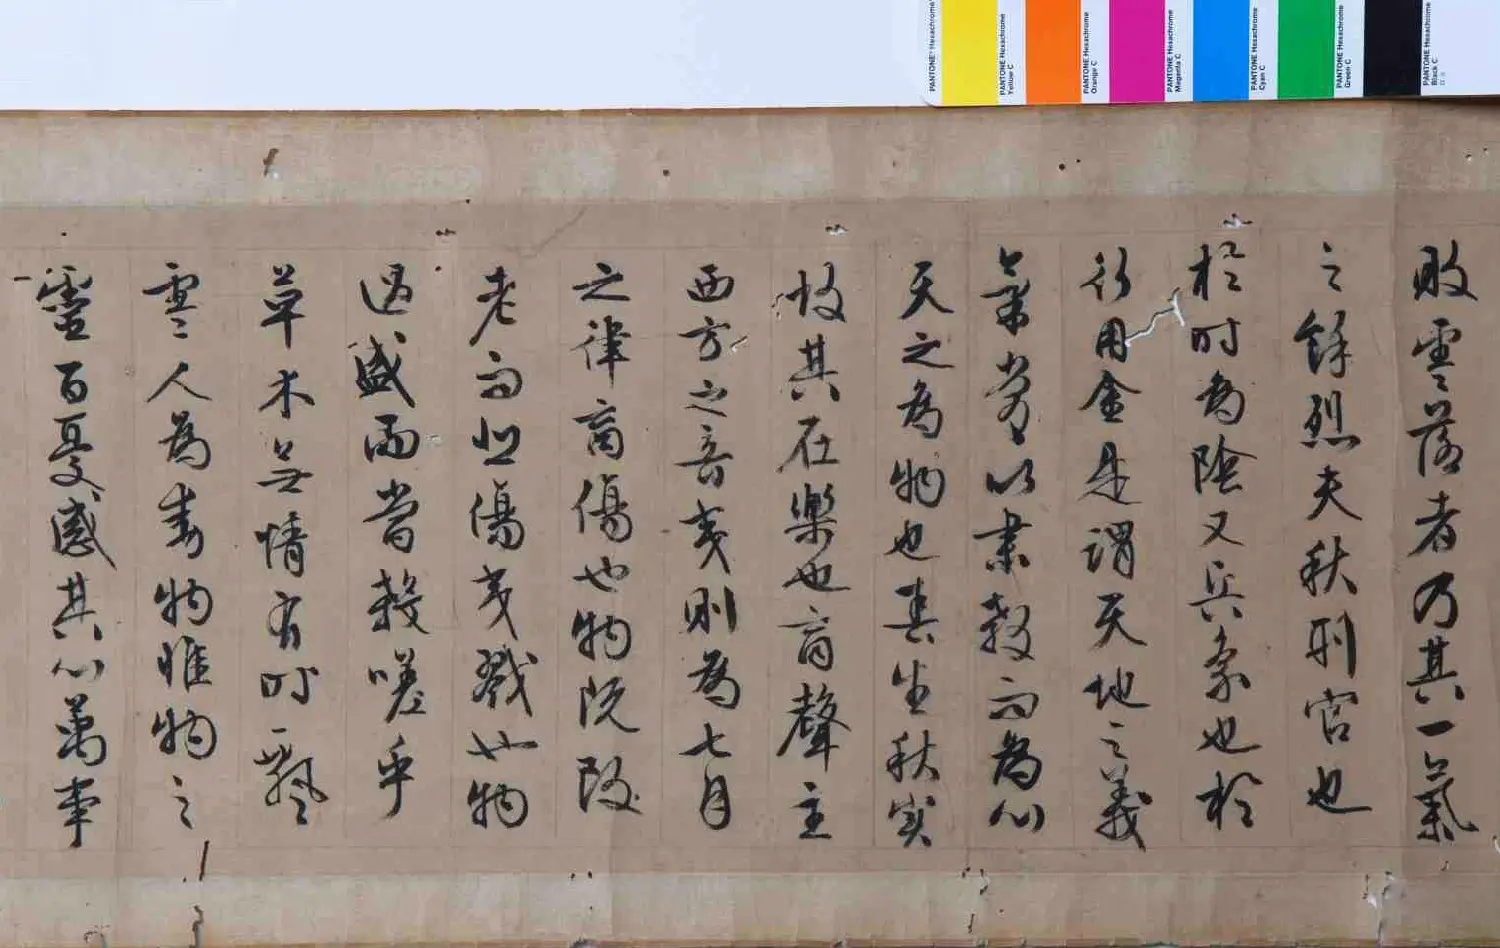 PANTONE® Hexachrome
PANTONE Hexachrome Yellow C
PANTONE Hexachrome Orange C
PANTONE Hexachrome Magenta C
PANTONE Hexachrome Cyan C
PANTONE Hexachrome Green C
PANTONE Hexachrome Black C
敗零落者乃其一氣
之餘烈夫秋刑官也
於時為陰又兵象也於
行用金是謂天地之義
氣常以肅殺而為心
天之為物也春生秋實
故其在樂也商聲主
西方之音夷則為七月
之律商傷也物既
老而悲傷夷戮也物
過盛而當殺嗟乎
草木無情有時飄
零人為動物惟物之
靈百憂感其心萬事